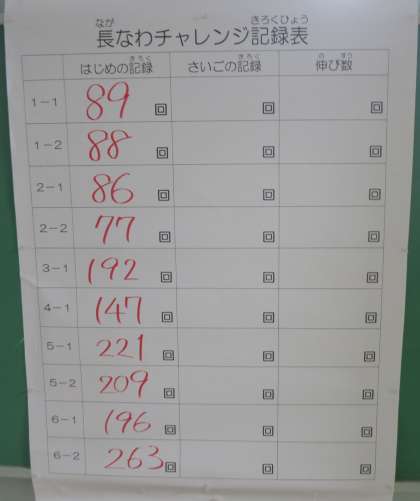 長なわチャレンジ記録表
はじめの記録 さいごの記録 伸び数
1-1 89回 回 回
1-2 88回 回 回
2-1 86回 回 回
2-2 77回 回 回
3-1 192回 回 回
4-1 147回 回 回
5-1 221回 回 回
5-2 209回 回 回
6-1 196回 回 回
6-2 263回 回 回